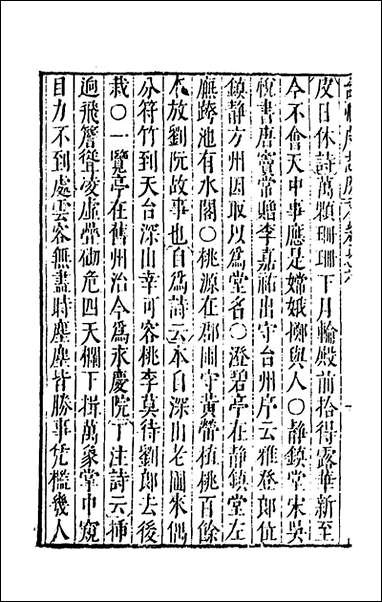 皮日休詩萬顆珊珊下月輪殿前拾得露華新至
今不會天中事應是嫦娥擲與人〇靜鎮堂末吳
悅書唐竇常贈李嘉祐出守台州序云雅登郎位
鎮靜方州因取以爲堂名〇澄碧亭在靜鎮堂左
廡踏池有水閣〇桃源在郡圃守黃㽦植桃百餘
本放劉阮故事也自爲詩云本自深山老圃來偶
分符竹到天台深山幸可容桃李莫待劉郎去後
栽〇一覽亭在舊州治今爲永慶院丁注詩云揷
迥飛簷聳凌虛疊砌危四天欄下揖萬象掌中窺
目力不到處雲容無盡時塵塵皆勝事凭檻幾人